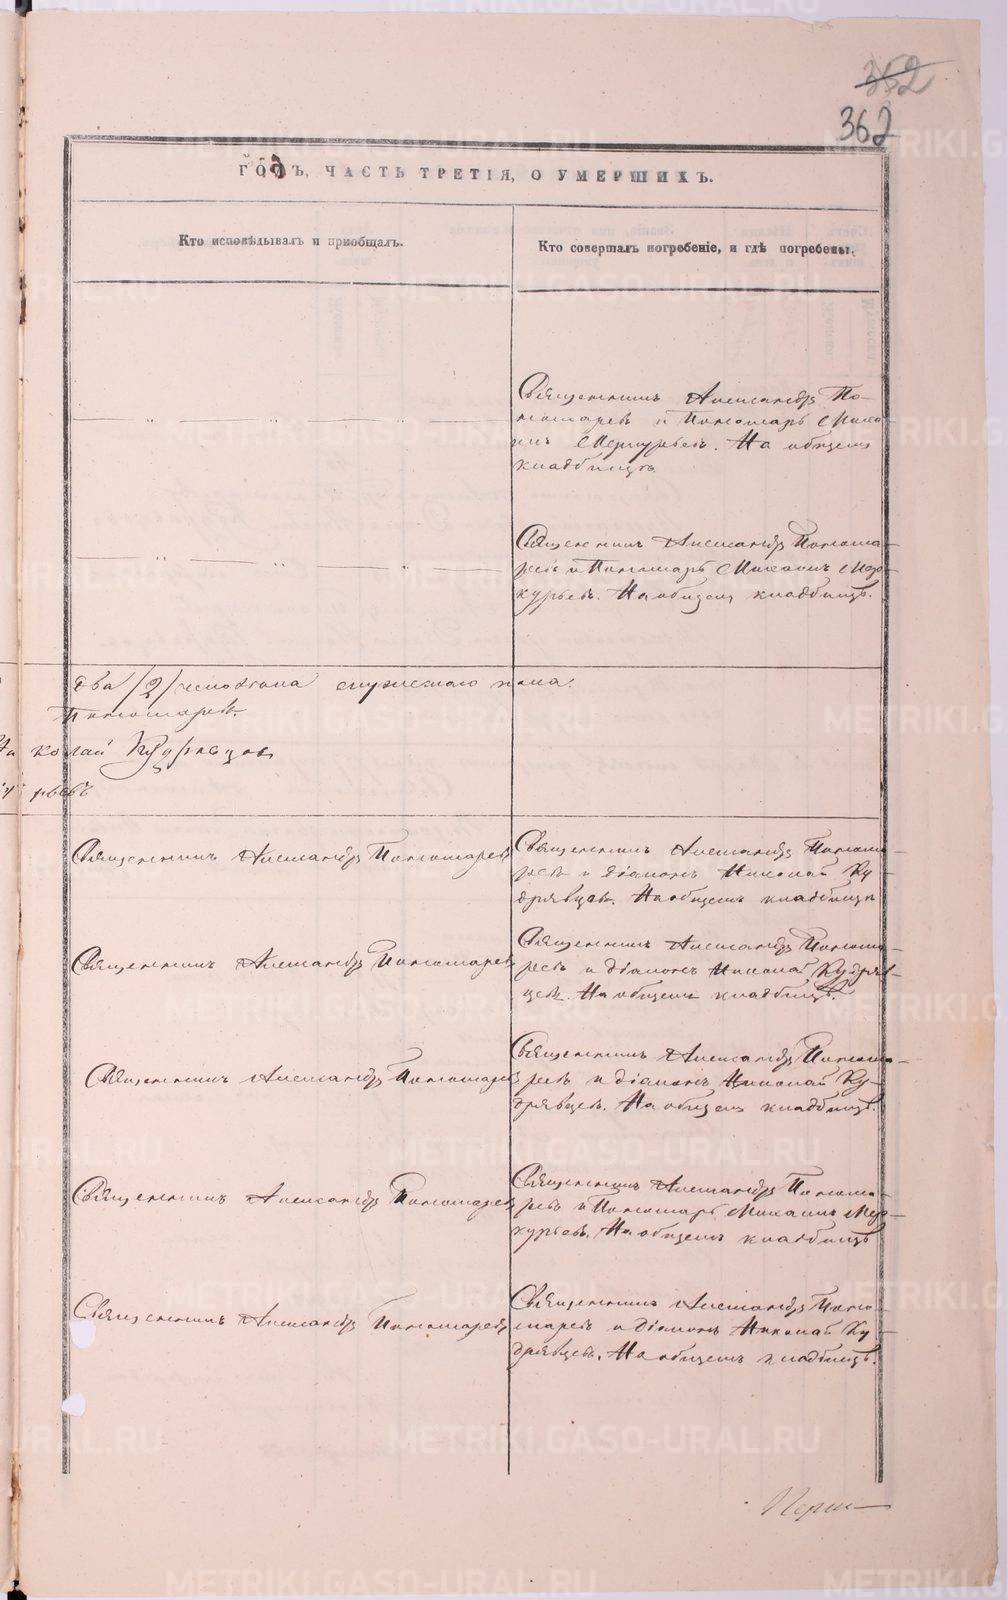 352
362
ГОДЪ, ЧАСТЬ ТРЕТІЯ, О УМЕРШИХЪ.
Кто исповѣдывалъ и пріобщалъ.
Кто совершалъ погребеніе, и гдѣ погребены.
Священникъ Александръ По-
номаревъ и Пономарь Миха
илъ Меркурьевъ. На общемъ
кладбищѣ
Священникъ Александръ Понома-
ревъ и Пономарь Михаилъ Мер-
курьевъ. На общем кладбищѣ.
два /2/ человѣка мужескаго пола.
Пономаревъ.
колай Кудрявцовъ
рьевъ
Священникъ Александръ Пономаревъ
Священникъ Александръ Понома-
ревъ и Діаконъ Николай Ку-
дрявцевъ. На общемъ кладбищѣ
Священникъ Александръ Пономаревъ
Священникъ Александръ Понома-
ревъ и Діаконъ Николай Кудряв-
цевъ. На общемъ кладбищѣ.
Священникъ Александръ Пономаревъ
Священникъ Александръ Понома-
ревъ и Діаконъ Николай Ку-
дрявцевъ. На общем кладбищѣ.
Священникъ Александръ Пономаревъ
Священникъ Александръ Понома-
ревъ и Пономарь Михаилъ Мер-
курьевъ. На общемъ кладбищѣ
Священникъ Александръ Пономаревъ
Священникъ Александръ Поно-
маревъ и Діаконъ Николай Ку-
дрявцевъ. На общемъ кладбищѣ.
METRIKI.GASO-URAL.RU